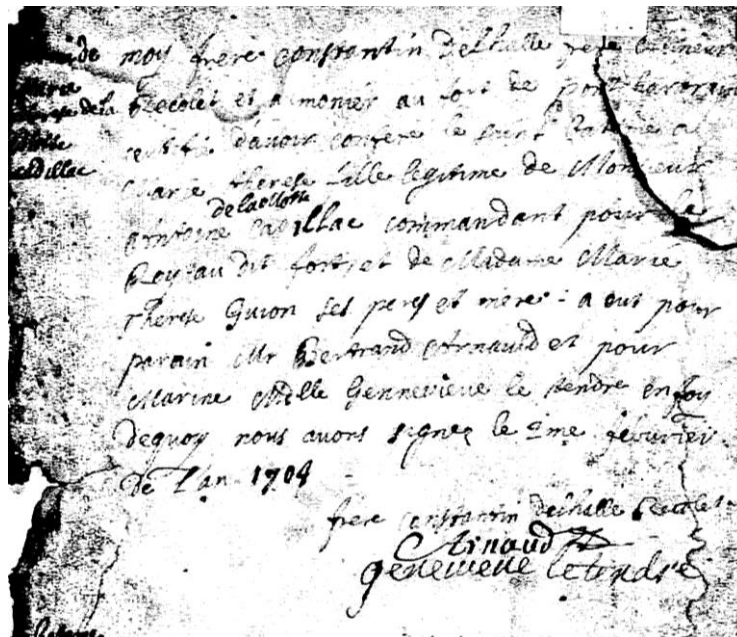 de
Marie
therese de la
Motte
Cadillac
moy frere Constantin Delhalle pere
Recolet et aumonier au fort de pontchartrain
certifie d'avoir confere le saint a
Marie therese fille legitime de Monsieur
de la Motte
Antoine Cadillac commandant pour le
Roy au dit fort et de Madame Marie
Therese Guion ses perej et mere - a eut pour
parain Mr Bertrand Arnauld et pour
Marine Mdlle Gennevieve le tendre en foy
dequoy nous avons signez le 2me febvrier
De l'an 1704
frere constantin delhalle Recolet
Arnaud
genevieve letendre